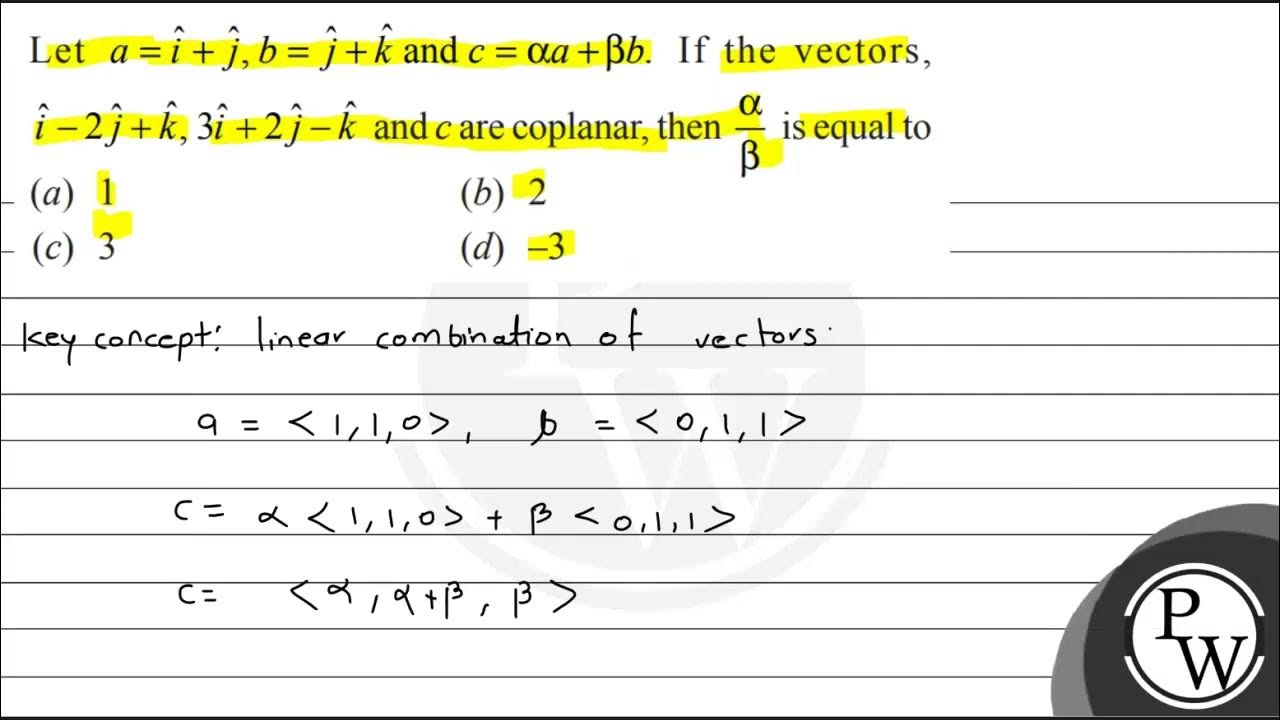 Let a = î + ĵ, b = ĵ + k̂ and c = αa + βb. If the vectors,
î − 2ĵ + k̂, 3î + 2ĵ − k̂ and c are coplanar, then α/β is equal to
(a) 1 (b) 2
(c) 3 (d) –3
Key concept: linear combination of vectors.
a = < 1, 1, 0 >, b = < 0, 1, 1 >
c = α < 1, 1, 0 > + β < 0, 1, 1 >
c = < α, α + β, β >
PW